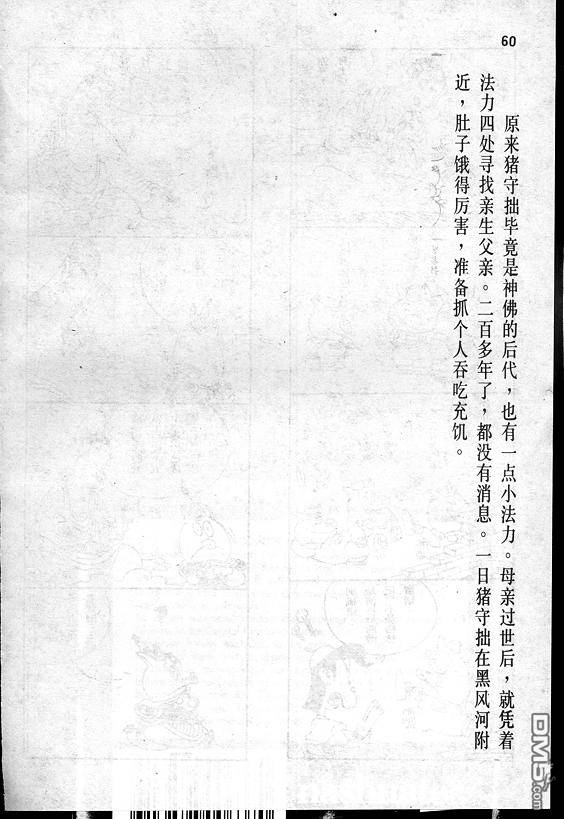 60
原来猪守拙毕竟是神佛的后代，也有一点小法力。母亲过世后，就凭着
法力四处寻找亲生父亲。二百多年了，都没有消息。一日猪守拙在黑风河附
近，肚子饿得厉害，准备抓个人吞吃充饥。
DM5.com